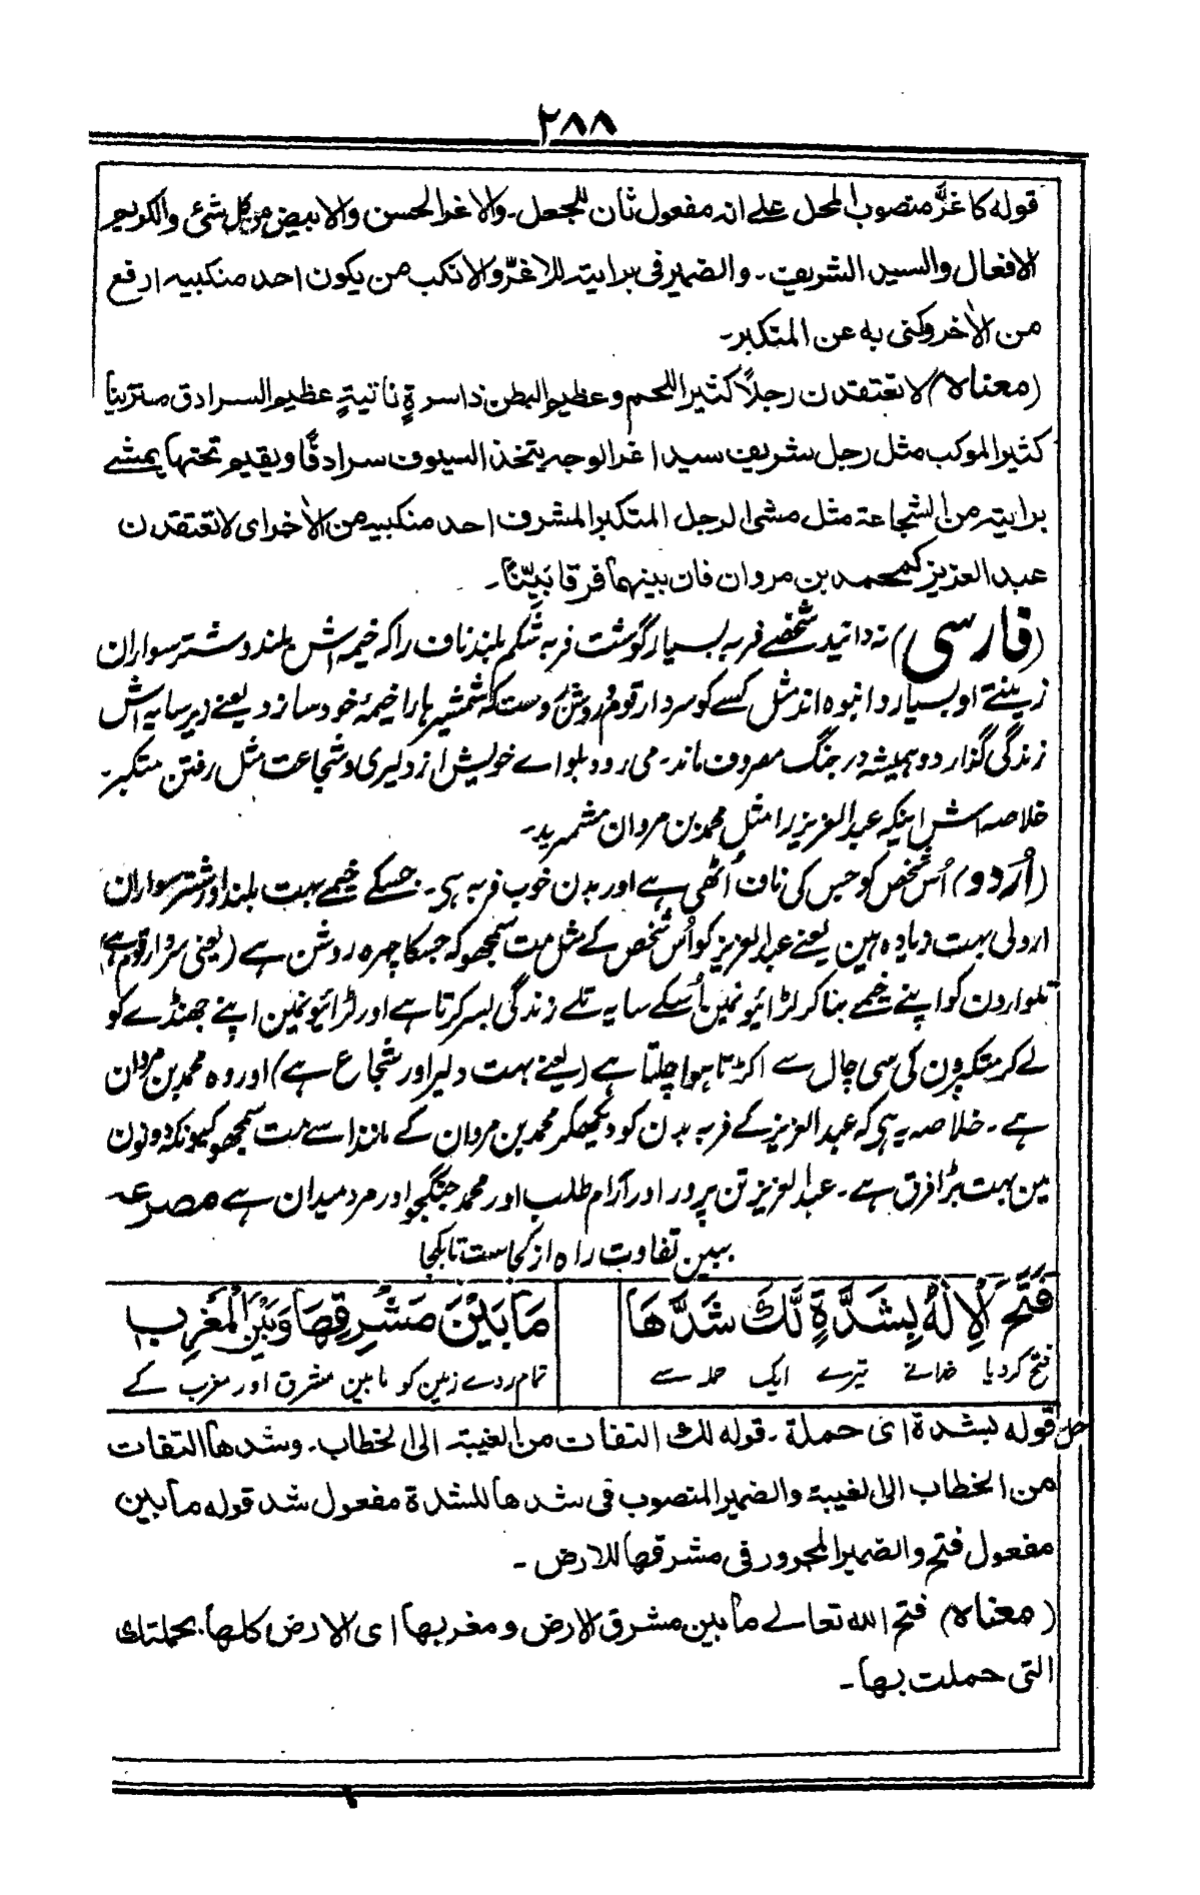 ۲۸۸
قوله کاغرَّ منصوب المحل علے انہ مفعول ثان للجعل۔ والاغر الحسن والابیض من کل شئ والکریم
الافعال والسید الشریف۔ والضمیر فی برایتہ للاغرّ والانکب من یکون احد منکبیہ ارفع
من الاٰخر وکنی بہ عن المتکبر۔
(معناہ) لا تعتقدن رجلاً کثیر اللحم وعظیم البطن ذا سرۃٍ ناتیۃٍ عظیم السرادق متزینا
کثیر الموکب مثل رجل شریف سید اغر الوجہ یتخذ السیوف سرادقًا ویقیم تحتہا یمشے
برایتہ من الشجاعۃ مثل مشی الرجل المتکبر المشرف احد منکبیہ من الاٰخر ای لا تعتقدن
عبد العزیز کمحمد بن مروان فان بینہما فرقا بَیِّنًا۔
(فارسی) نہ دانید شخصے فربہ بسیار گوشت فربہ شکم بلند ناف را کہ خیمہ اش بلند و شتر سواران
زینتے او بسیار و انبوہ اند مثل کسے کو سردار قوم و روشن رُوست کہ شمشیر ہا را خیمۂ خود سازد یعنے زیر سایہ اش
زندگی گذارد و ہمیشہ در جنگ مصروف ماند۔ می رود بلواے خویش از دلیری و شجاعت مثل رفتن متکبر۔
خلاصہ اش اینکہ عبد العزیز را مثل محمد بن مروان مشمرید۔
(اُردو) اُس شخص کو جس کی ناف اُٹھی ہے اور بدن خوب فربہ ہی۔ جسکے خیمے بہت بلند اور شتر سواران
اردلی بہت زیادہ ہین یعنے عبد العزیز کو اُس شخص کے مثل مت سمجھو کہ جسکا چہرہ روشن ہے (یعنی سردار قوم ہے)
تلوارون کو اپنے خیمے بنا کر لڑائیونمین اُسکے سایہ تلے زندگی بسر کرتا ہے اور لڑائیونمین اپنے جھنڈے کو
لے کر متکبرون کی سی چال سے اکڑتا ہوا چلتا ہے (یعنے بہت دلیر اور شجاع ہے) اور وہ محمد بن مروان
ہے۔ خلاصہ یہ ہی کہ عبد العزیز کے فربہ بدن کو دیکھکر محمد بن مروان کے مانند اسے مت سمجھو کیونکہ دونون
مین بہت بڑا فرق ہے۔ عبد العزیز تن پرور اور آرام طلب اور محمد جنگجو اور مرد میدان ہے مصرعہ
ببین تفاوت راہ از کجاست تا بکجا
فَتَحَ الْاِلٰہُ بِشَدَّۃٍ لَّکَ شَدَّھَا مَا بَیْنَ مَشْرِقِھَا وَبَیْنَ الْمَغْرِبِ
فتح کردیا خدانے تیرے ایک حملہ سے تمام روے زمین کو مابین مشرق اور مغرب کے
حل قوله بشدۃ ای حملۃ۔ قوله لک التفات من الغیبۃ الی الخطاب۔ وشدھا التفات
من الخطاب الی الغیبۃ والضمیر المنصوب فی شدھا للشدۃ مفعول شد قوله ما بین
مفعول فتح والضمیر المجرور فی مشرقھا للارض۔
(معناہ) فتح اللہ تعالے ما بین مشرق الارض ومغربھا ای الارض کلھا بحملتک
التی حملت بھا۔